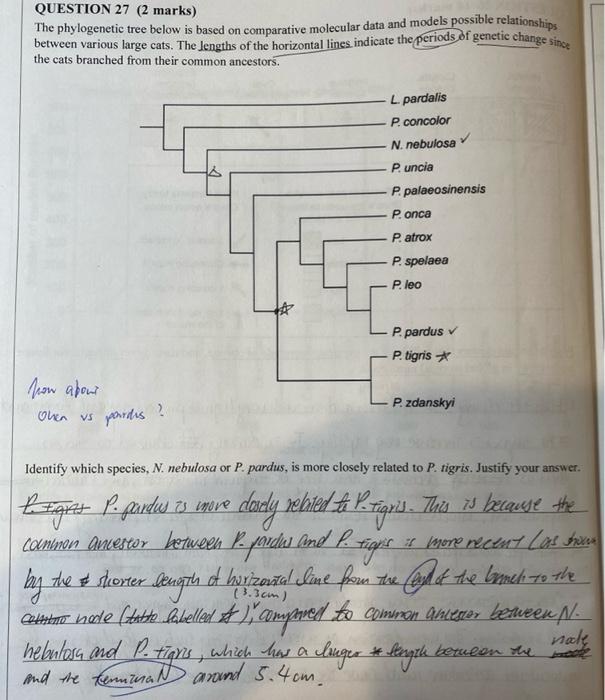 QUESTION 27 (2 marks)
The phylogenetic tree below is based on comparative molecular data and models possible relationships
between various large cats. The lengths of the horizontal lines indicate the periods of genetic change since
the cats branched from their common ancestors.
L. pardalis
P. concolor
N. nebulosa ✓
P. uncia
P. palaeosinensis
P. onca
P. atrox
P. spelaea
P. leo
P. pardus ✓
P. tigris ☆
P. zdanskyi
how about
vs pardus ?
Identify which species, N. nebulosa or P. pardus, is more closely related to P. tigris. Justify your answer.
P. tigris P. pardus is more closely related to P. tigris. This is because the
common ancestor between P. pardus and P. tigris is more recent (as shown
by the shorter length of horizontal line from the end of the branch to the
(3.3cm)
node (labelled ☆), compared to common ancestor between N.
nebulosa and P. tigris, which has a longer length between the node
and the terminal around 5.4cm.